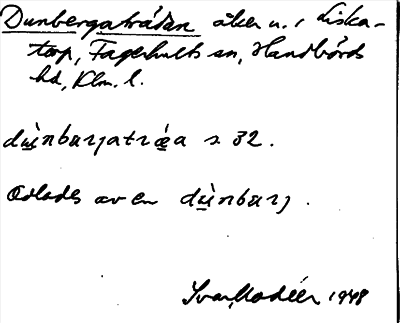 Dunbergaträdan åker u. Fiska-
torp, Fagerhults sn, Handbörds
hd, Klm. l.
dùnburjatræ̀a s. 32.
Odlades av en dùnburj.
Ivar Modéer 1948